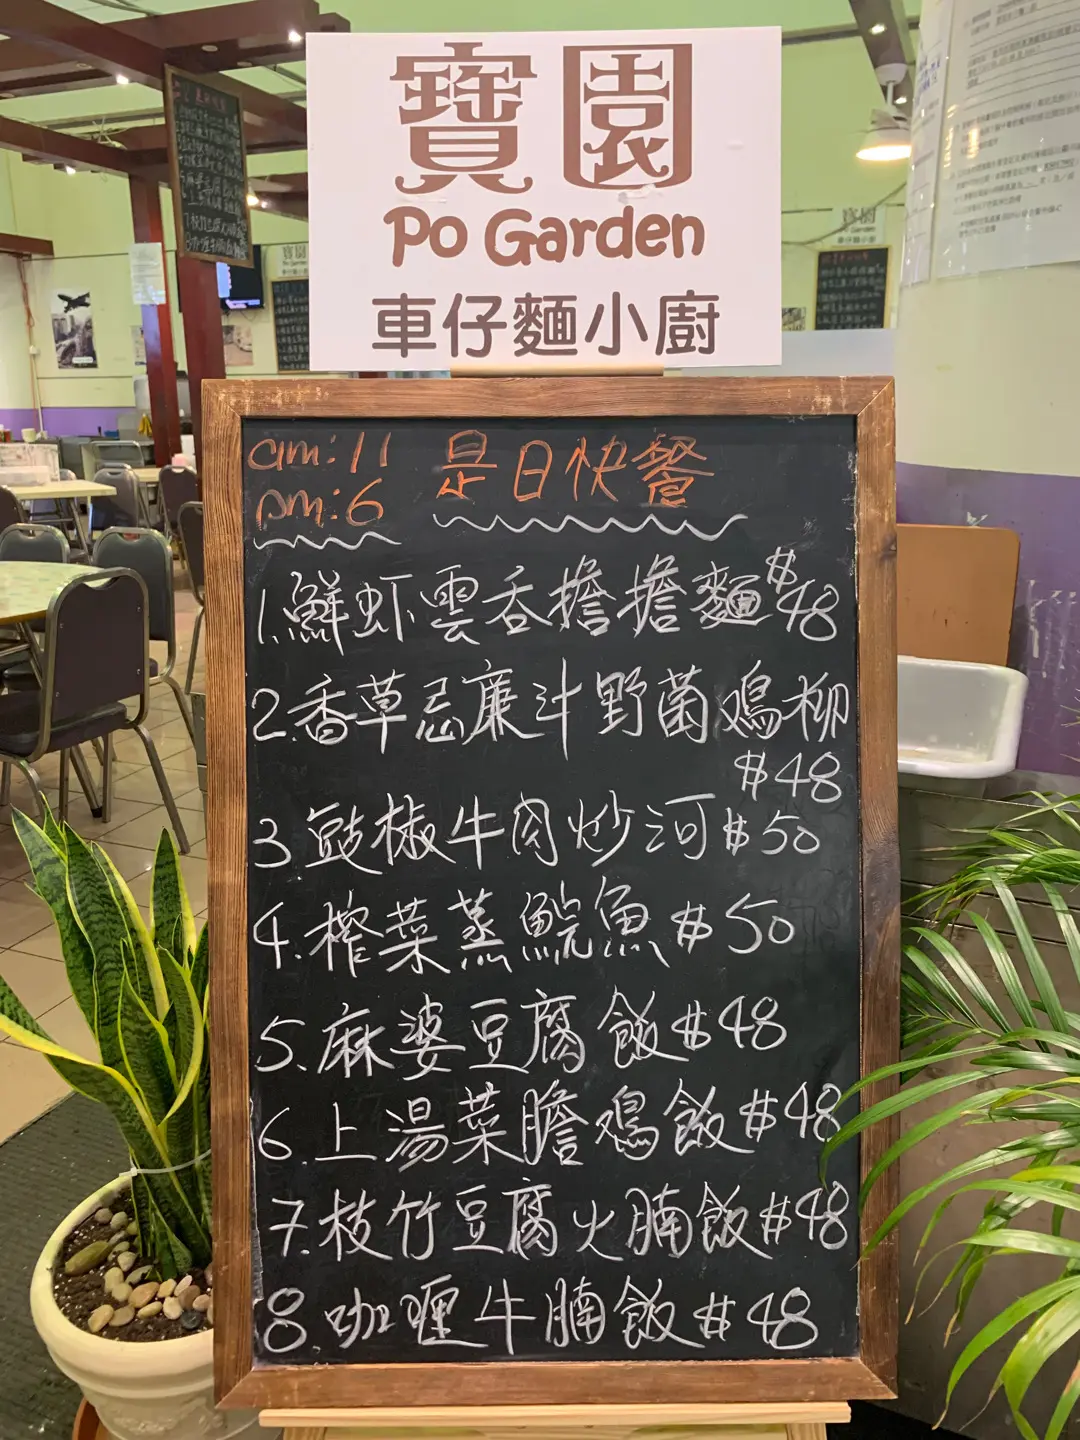 寶園
Po Garden
車仔麵小廚
am:11 是日快餐
pm:6
1.鮮虾雲吞擔擔麵 $48
2.香草忌廉汁野菌鳮柳
$48
3 豉椒牛肉炒河 $50
4.榨菜蒸鯇魚 $50
5.麻婆豆腐飯 $48
6.上湯菜膽鳮飯 $48
7.枝竹豆腐火腩飯 $48
8.咖喱牛腩飯 $48